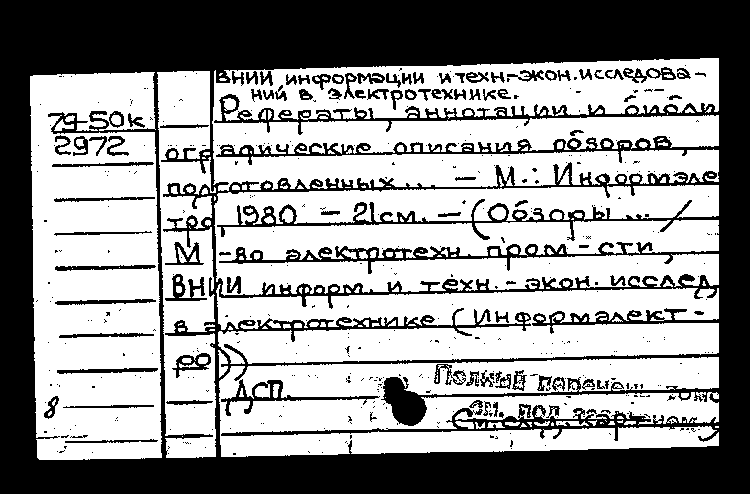 ВНИИ информации и техн.-экон.исследова-
ний в электротехнике.
79-50к Рефераты, аннотации и библи
2972 ографические описания обзоров,
подготовленных... - М.: Информэле
тро, 1980 - 21см. - (Обзоры ... /
М-во электротехн. пром-сти,
ВНИИ информ. и техн.-экон. исслед,
в электротехнике (Информэлект-
ро))
ДСП.
Полный перечень томо
8 см. под
См. след. карт